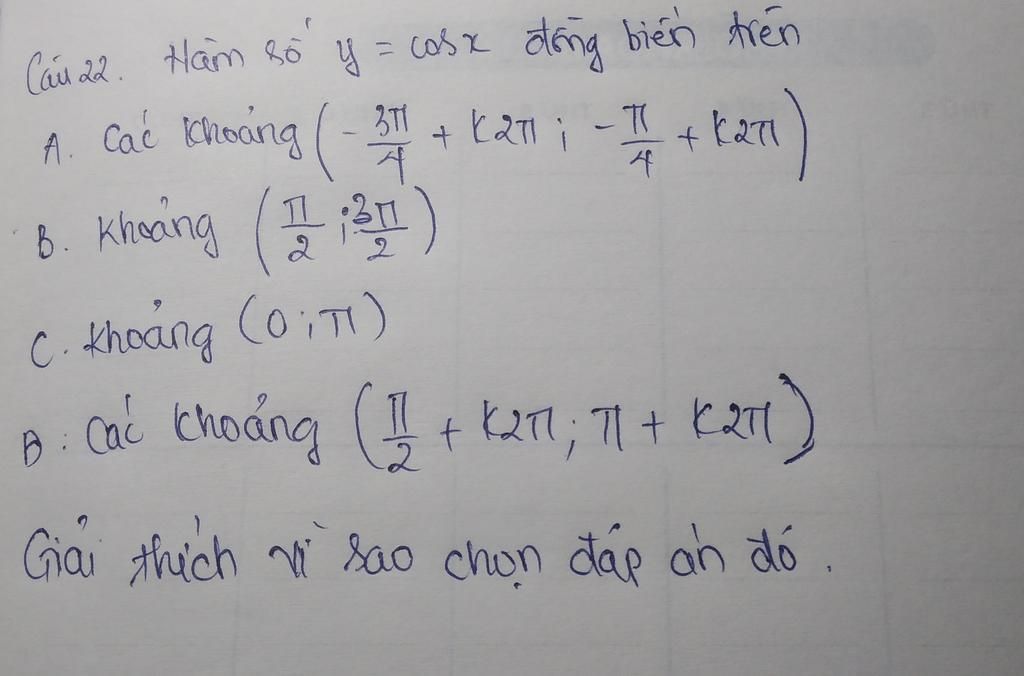 Câu 22. Hàm số y = cosx đồng biến trên
A. Các khoảng (-3π/4 + k2π ; -π/4 + k2π)
B. Khoảng (π/2 ; 3π/2)
C. Khoảng (0 ; π)
D. Các khoảng (π/2 + k2π ; π + k2π)
Giải thích vì sao chọn đáp án đó.